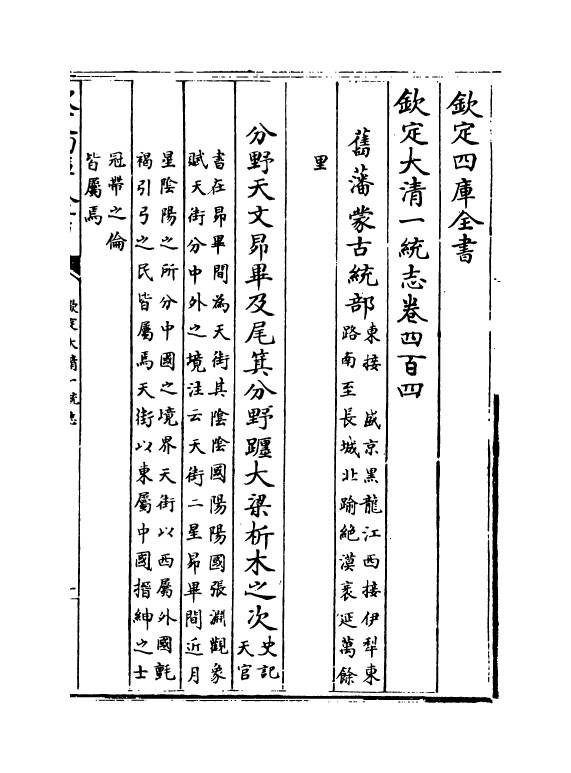 欽定四庫全書
欽定大清一統志卷四百四
舊藩蒙古統部
東接 盛京黑龍江西接伊犁東
路南至長城北踰絶漠袤延萬餘
里
分野天文昴畢及尾箕分野躔大梁析木之次
史記
天官
書在昴畢間為天街其陰陰國陽陽國張淵觀象
賦天街分中外之境注云天街二星昴畢間近月
星陰陽之所分中國之境界天街以西屬外國氈
褐引弓之民皆屬焉天街以東屬中國搢紳之士
冠帶之倫
皆屬焉
欽定大清一統志
一